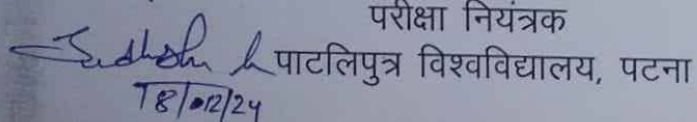 परीक्षा नियंत्रक
पाटलिपुत्र विश्वविद्यालय, पटना
18/12/24